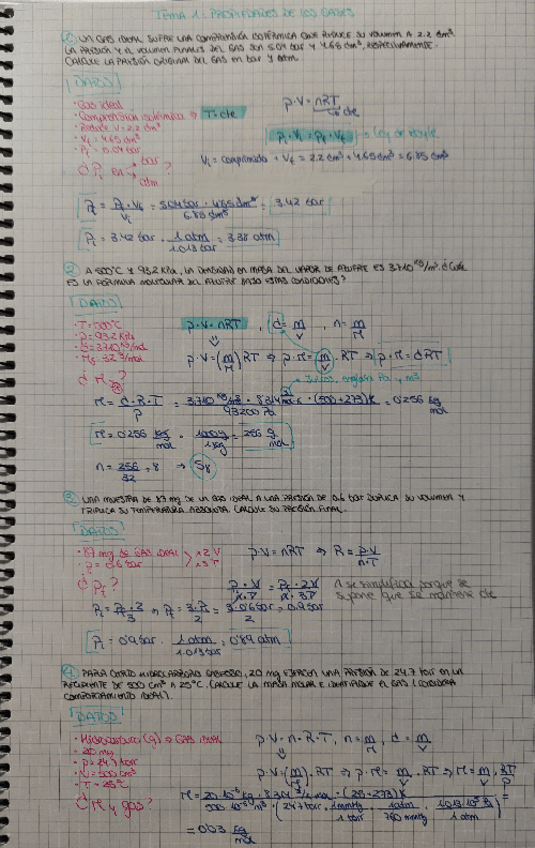 TEMA 1: PROPIEDADES DE LOS GASES
① UN GAS IDEAL SUFRE UNA COMPRENSIÓN ISOTÉRMICA QUE REDUCE SU VOLUMEN A 2.2 dm³.
LA PRESIÓN Y EL VOLUMEN FINALES DEL GAS SON 5.04 bar Y 4.65 dm³, RESPECTIVAMENTE.
CALCULE LA PRESIÓN ORIGINAL DEL GAS EN bar y atm.
DATOS
· Gas ideal
· Comprensión isotérmica ⇒ T = cte
· Reduce V = 2.2 dm³
· Vf = 4.65 dm³
· Pf = 5.04 bar
¿ Pi en → bar → atm ?
p·V = nRT
cte
Pi·Vi = Pf·Vf → Ley de Boyle
Vi = comprimido + Vf = 2.2 dm³ + 4.65 dm³ = 6.85 dm³
Pi = Pf·Vf / Vi = 5.04 bar · 4.65 dm³ / 6.85 dm³ = 3.42 bar
Pi = 3.42 bar · 1 atm / 1.013 bar = 3.38 atm
② A 500°C Y 93.2 KPa, LA DENSIDAD EN MASA DEL VAPOR DE AZUFRE ES 3.710 Kg/m³. ¿Cuál
ES LA FORMULA MOLECULAR DEL AZUFRE BAJO ESTAS CONDICIONES?
DATOS
· T = 500°C
· P = 93.2 KPa
· d = 3.710 Kg/m³
· Ms = 32 g/mol
¿ M ?
p·V = nRT , d = m/V , n = m/M
p·V = (m/M) RT ⇒ p·M = m/V · RT ⇒ p·M = dRT
Pa y m³
M = d·R·T / p = 3.710 Kg/m³ · 8.314 · (500+273)K / 93200 Pa = 0.256 Kg/mol
M = 0.256 Kg/mol · 1000g / 1Kg = 256 g/mol
n = 256/32 = 8 → S₈
③ UNA MUESTRA DE 87 mg DE UN GAS IDEAL A UNA PRESIÓN DE 0.6 bar DUPLICA SU VOLUMEN Y
TRIPLICA SU TEMPERATURA ABSOLUTA. CALCULE SU PRESIÓN FINAL.
DATOS
· 87 mg DE GAS IDEAL
· p = 0.6 bar
x2 V
x3 T
¿ Pf ?
p·V = nRT ⇒ R = p·V / n·T
Pi·V / n·T = Pf·2V / n·3T
n se simplifica porque se
supone que se mantiene cte
Pi = Pf·2 / 3 ⇒ Pf = 3·Pi / 2 = 3·0.6 bar / 2 = 0.9 bar
Pf = 0.9 bar · 1 atm / 1.013 bar = 0.89 atm
④ PARA CIERTO HIDROCARBURO GASEOSO, 20 mg EJERCEN UNA PRESIÓN DE 24.7 torr EN UN
RECIPIENTE DE 500 cm³ A 25°C. CALCULE LA MASA MOLAR E IDENTIFIQUE EL GAS (CONSIDERA
COMPORTAMIENTO IDEAL).
DATOS
· Hidrocarburo (g) ⇒ GAS IDEAL
· 20 mg
· p = 24.7 torr
· V = 500 cm³
· T = 25°C
¿ M y gas ?
p·V = n·R·T , n = m/M , d = m/V
p·V = (m/M)·RT ⇒ p·M = m/V · RT ⇒ M = m/V · RT/p
M = 20·10⁻⁶ kg · 8.314 · (25+273)K / 500·10⁻⁶ m³ · (24.7 torr · 1mmHg / 1 torr · 1atm / 760 mmHg · 1.013·10⁵ Pa / 1 atm) =
= 0.03 Kg/mol